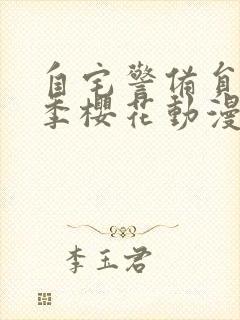 自宅警备員
季櫻花動漫
李玉君